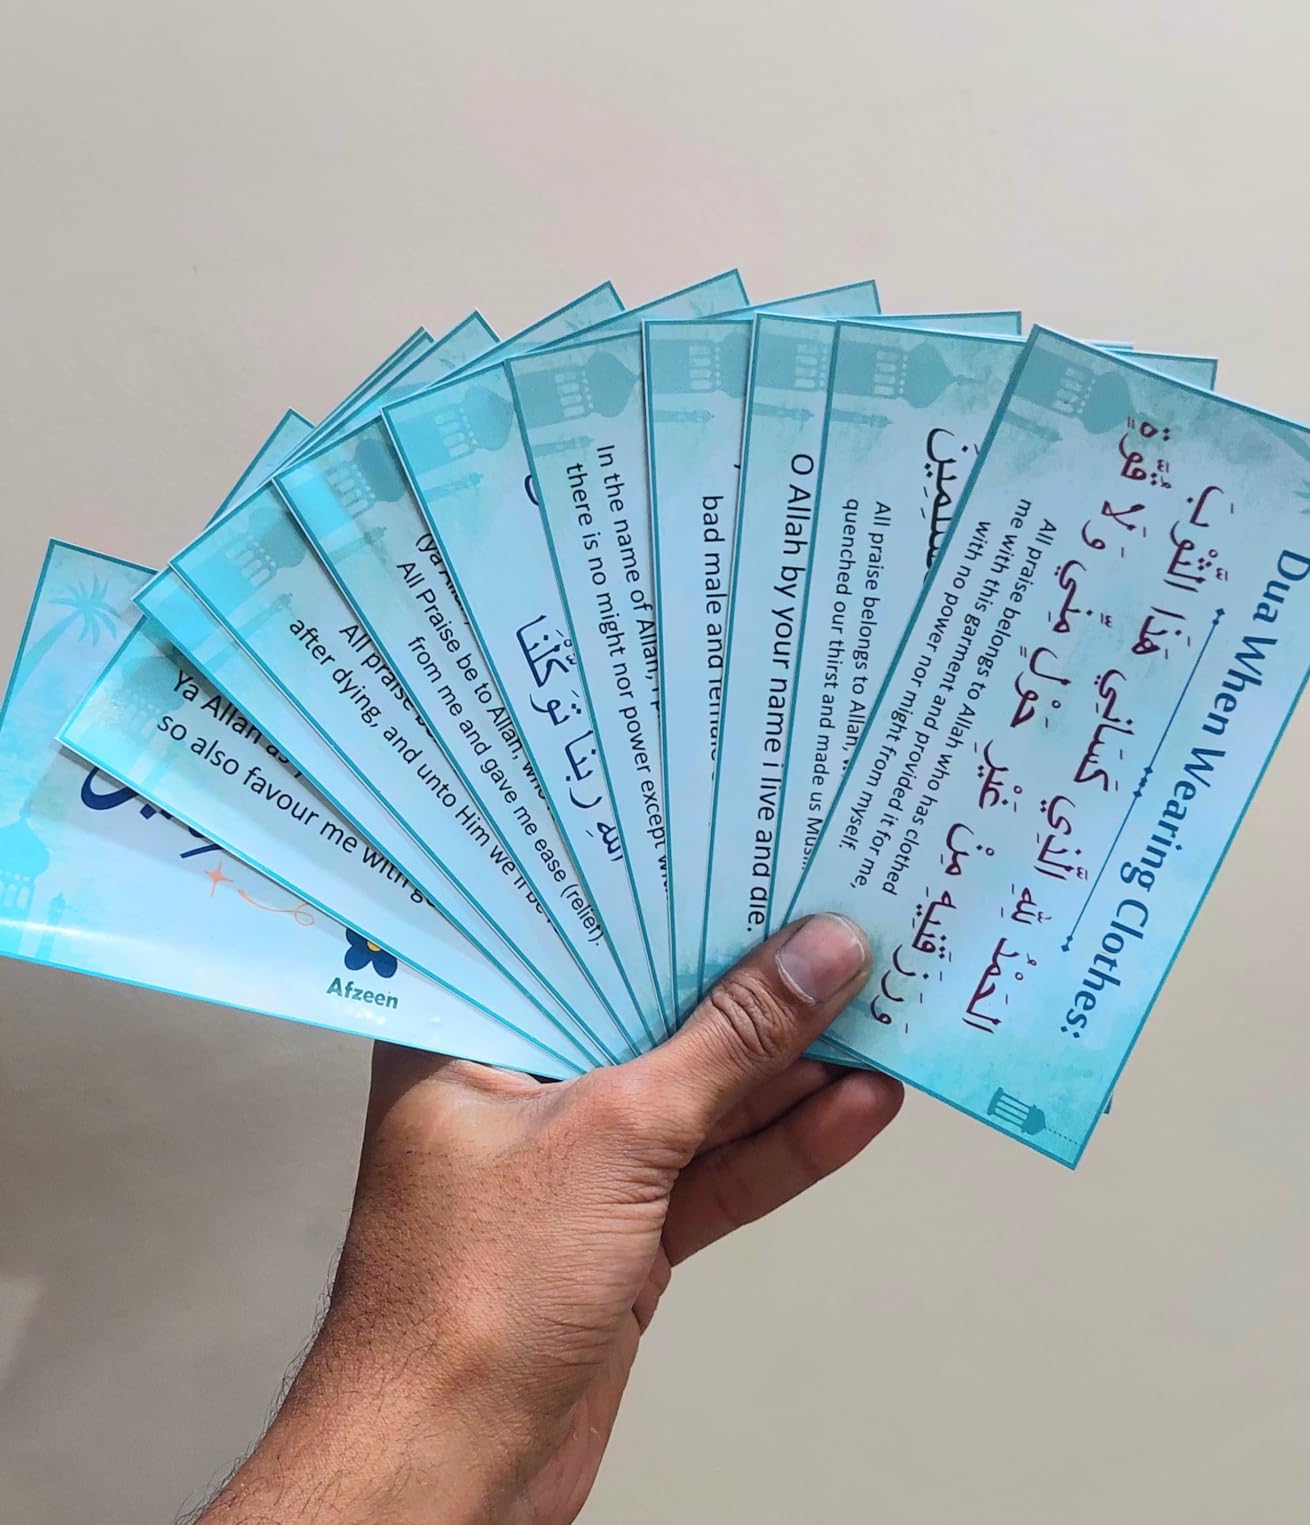 Dua When Wearing Clothes:
الحَمْدُ لِلَّهِ الَّذِي كَسَانِي هَذَا الثَّوْبَ
وَرَزَقَنِيهِ مِنْ غَيْرِ حَوْلٍ مِنِّي وَلَا قُوَّةٍ
All praise belongs to Allah who has clothed
me with this garment and provided it for me,
with no power nor might from myself.
All praise belongs to Allah,
quenched our thirst and made us
O Allah by your name i live and die.
bad male and
In the name of Allah,
there is no might nor power except
اللهِ رَبِّنَا تَوَكَّلْنَا
All Praise be to Allah,
from me and gave me ease (relief).
All praise
after dying, and unto Him we'll
Ya Allah as
so also favour me with
Afzeen